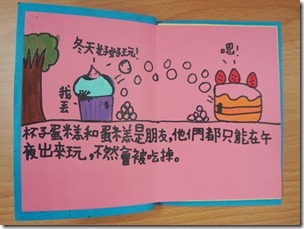 冬天好好玩!
嗯!
我丟
杯子蛋糕和蛋糕是朋友,他們都只能在午
夜出來玩,不然會被吃掉。